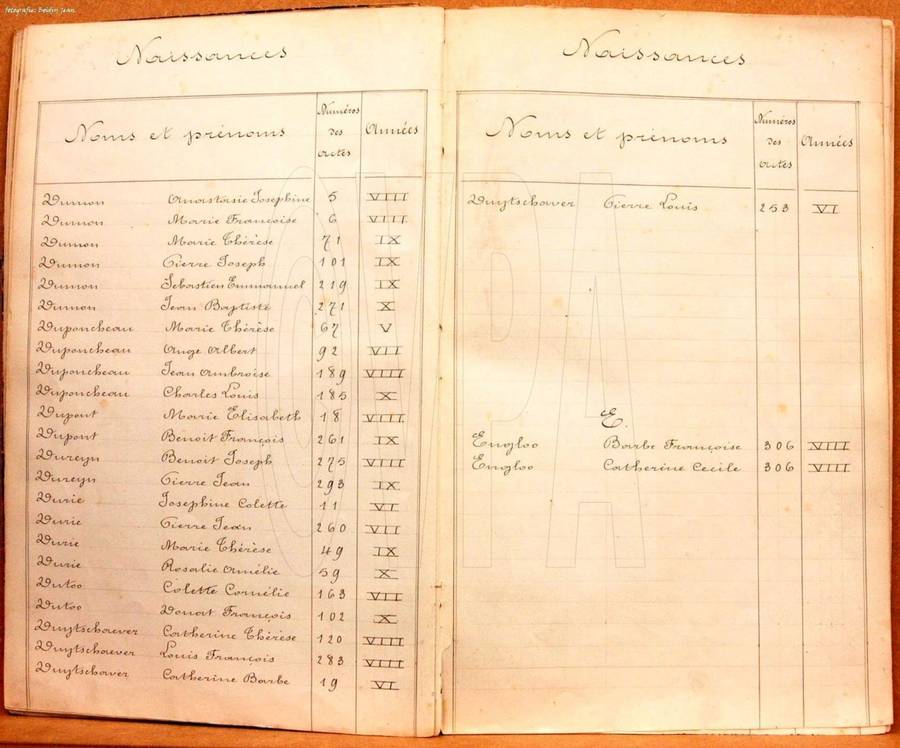 fotografie: Boidin Jean
Naissances
Noms et prénoms Numéros des actes Années
Dumon Anastasie Josephine 5 VIII
Dumon Marie Françoise 6 VIII
Dumon Marie Thérèse 71 IX
Dumon Pierre Joseph 101 IX
Dumon Sebastien Emmanuel 219 IX
Dumon Jean Baptiste 271 X
Duponcheau Marie Thérèse 67 V
Duponcheau Ange Albert 92 VII
Duponcheau Jean Ambroise 189 VIII
Duponcheau Charles Louis 185 X
Dupont Marie Elisabeth 18 VIII
Dupont Benoit François 261 IX
Dureyn Benoit Joseph 275 VIII
Dureyn Pierre Jean 293 IX
Durie Josephine Colette 11 VI
Durie Pierre Jean 260 VII
Durie Marie Thérèse 49 IX
Durie Rosalie Amélie 59 X
Dutoo Colette Cornélie 163 VII
Dutoo Donat François 102 X
Duytschaever Catherine Thérèse 120 VIII
Duytschaever Louis François 283 VIII
Duytschaver Catherine Barbe 19 VI
Naissances
Noms et prénoms Numéros des actes Années
Duytschaver Pierre Louis 253 VI
E.
Engloo Barbe Françoise 306 VIII
Engloo Catherine Cecile 306 VIII